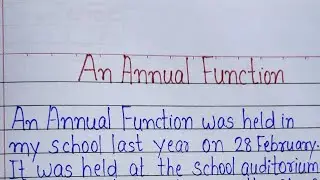 An Annual Function
An Annual Function was held in
my school last year on 28 February.
It was held at the school auditorium